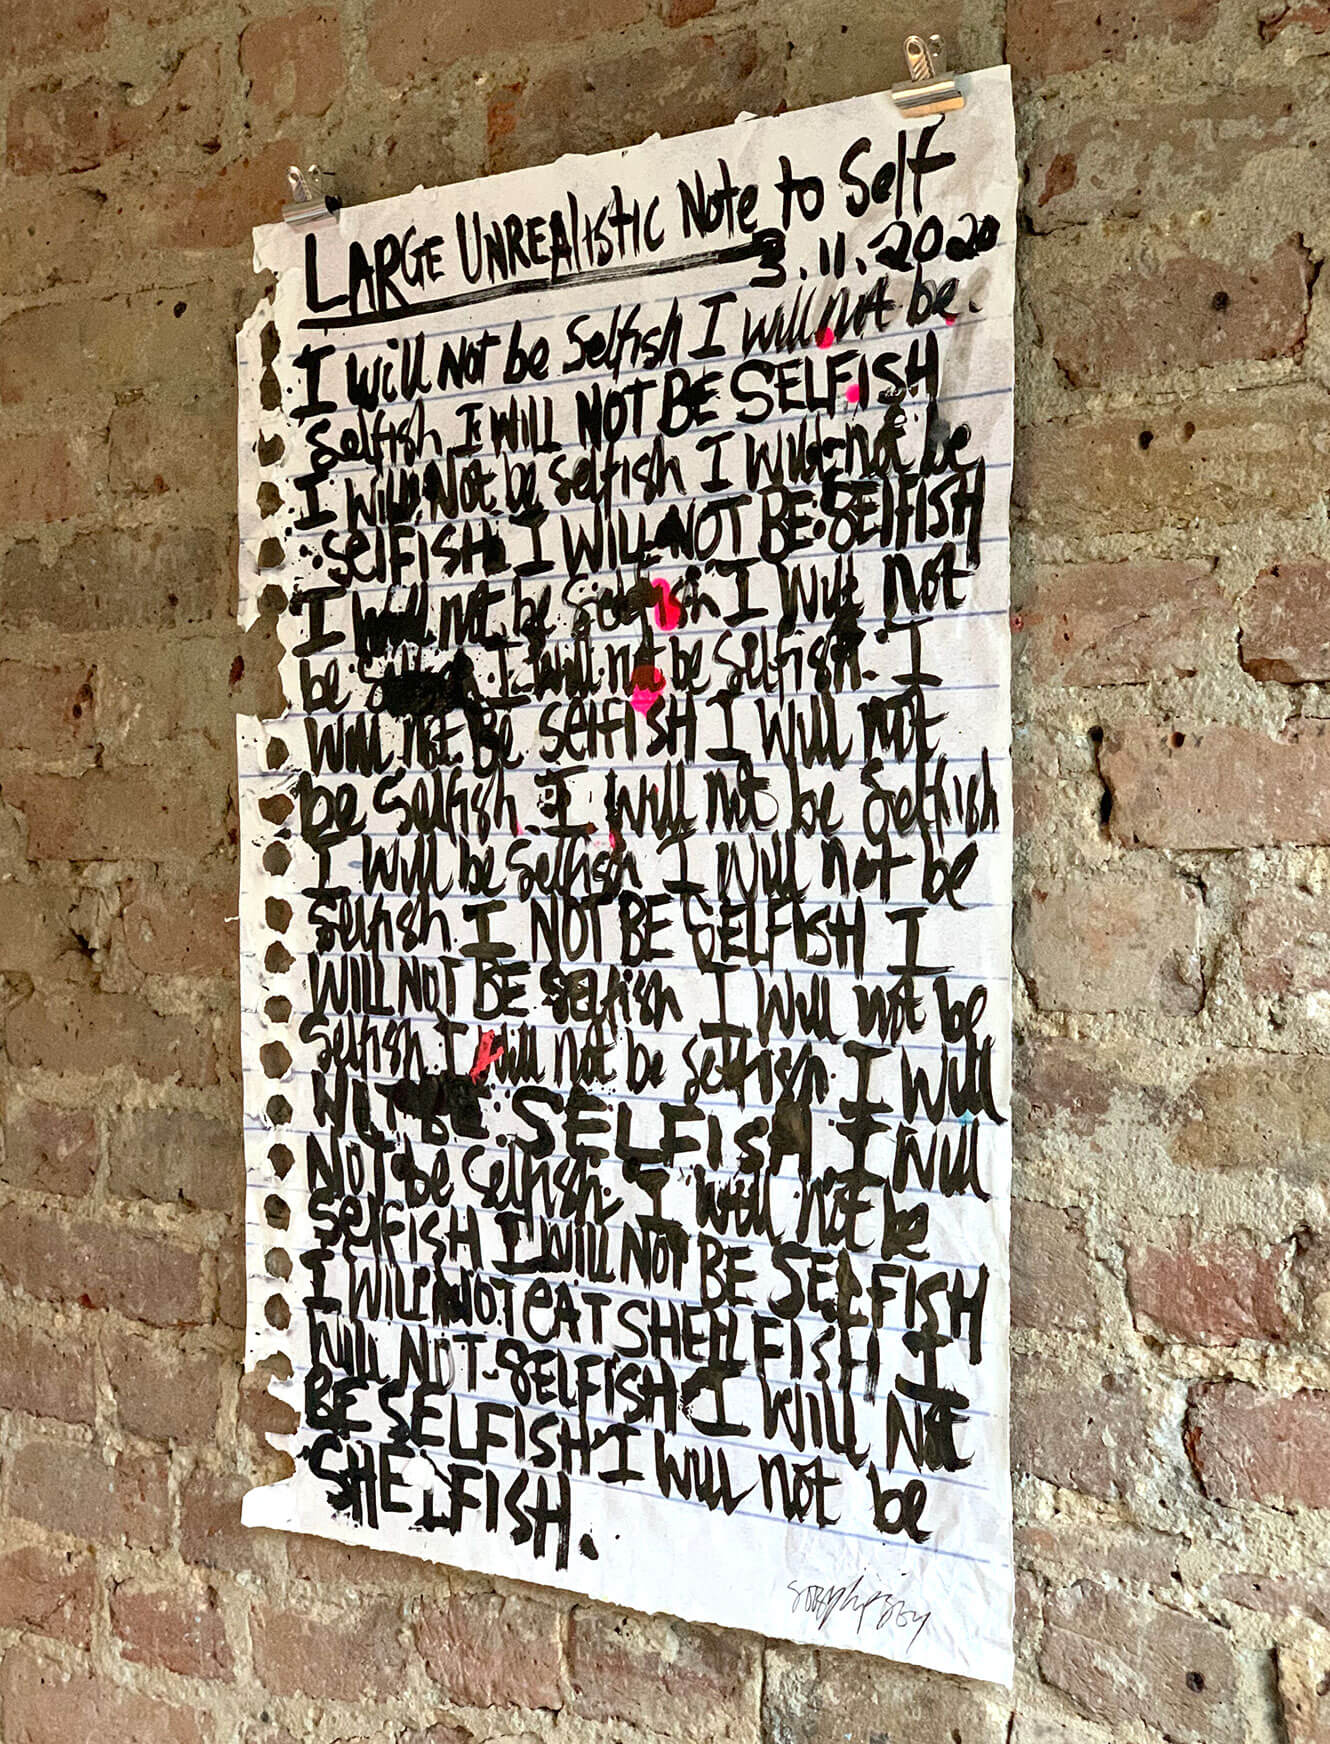 LARGE UNREAlistIC Note to Self
3.11.2020
I will Not be Selfish I will not be.
Selfish I WILL NOT BE SELFISH
I WILL Not be Selfish I Will not be
SelFISH I WILL NOT BE SElFISH
I will not be Selfish I Will Not
be I will not be Selfish. I
Will not Be SelfISH I Will not
be Selfish I Will not be Selfish
I Will be Selfish I Will not be
Selfish I NOT BE SELFISH I
WILL NOT BE Selfish I Will not be
Selfish I Will not be selfish I Will
BE SELFISH I Will
NOT be Selfish. I will not be
SelFISH I WILL NOT BE SELFISH
I WILL NOT EAT SHELLFISH I
Will NOT SELFISH I Will Not
BE SELFISH I Will not be
SHELFISH.